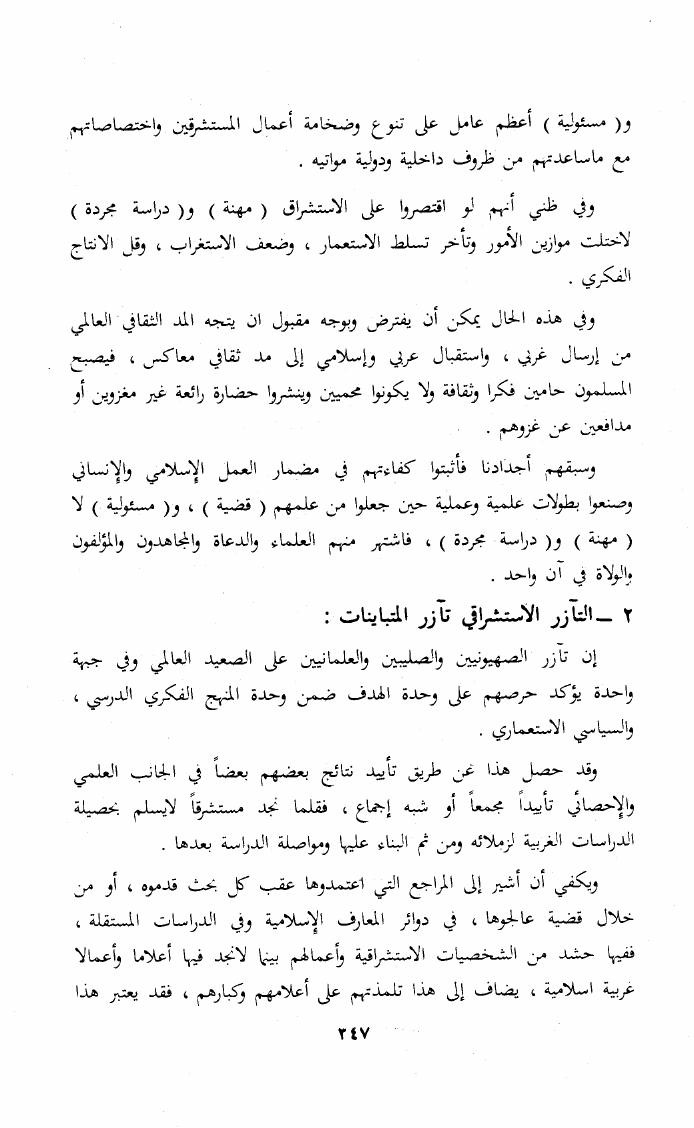 و( مسئولية ) أعظم عامل على تنوع وضخامة أعمال المستشرقين واختصاصاتهم
مع ماساعدتهم من ظروف داخلية ودولية مواتيه .
وفي ظني أنهم لو اقتصروا على الاستشراق ( مهنة ) و( دراسة مجردة )
لاختلت موازين الأمور وتأخر تسلط الاستعمار ، وضعف الاستغراب ، وقل الانتاج
الفكري .
وفي هذه الحال يمكن أن يفترض وبوجه مقبول ان يتجه المد الثقافي العالمي
من إرسال غربي ، واستقبال عربي وإسلامي إلى مد ثقافي معاكس ، فيصبح
المسلمون حامين فكرا وثقافة ولا يكونوا محميين وينشروا حضارة رائعة غير مغزوين أو
مدافعين عن غزوهم .
وسبقهم أجدادنا فأثبتوا كفاءتهم في مضمار العمل الإسلامي والإنساني
وصنعوا بطولات علمية وعملية حين جعلوا من علمهم ( قضية ) ، و( مسئولية ) لا
( مهنة ) و( دراسة مجردة ) ، فاشتهر منهم العلماء والدعاة والمجاهدون والمؤلفون
والولاة في آن واحد .
٢ ــ التآزر الاستشراقي تآزر المتباينات :
إن تآزر الصهيونيين والصليبين والعلمانيين على الصعيد العالمي وفي جبهة
واحدة يؤكد حرصهم على وحدة الهدف ضمن وحدة المنهج الفكري الدرسي ،
والسياسي الاستعماري .
وقد حصل هذا عن طريق تأييد نتائج بعضهم بعضاً في الجانب العلمي
والإحصائي تأييداً مجمعاً أو شبه إجماع ، فقلما نجد مستشرقاً لايسلم بحصيلة
الدراسات الغربية لزملائه ومن ثم البناء عليها ومواصلة الدراسة بعدها .
ويكفي أن أشير إلى المراجع التي اعتمدوها عقب كل بحث قدموه ، أو من
خلال قضية عالجوها ، في دوائر المعارف الإسلامية وفي الدراسات المستقلة ،
ففيها حشد من الشخصيات الاستشراقية وأعمالهم بينما لانجد فيها أعلاما وأعمالا
غربية اسلامية ، يضاف إلى هذا تلمذتهم على أعلامهم وكبارهم ، فقد يعتبر هذا
٢٤٧